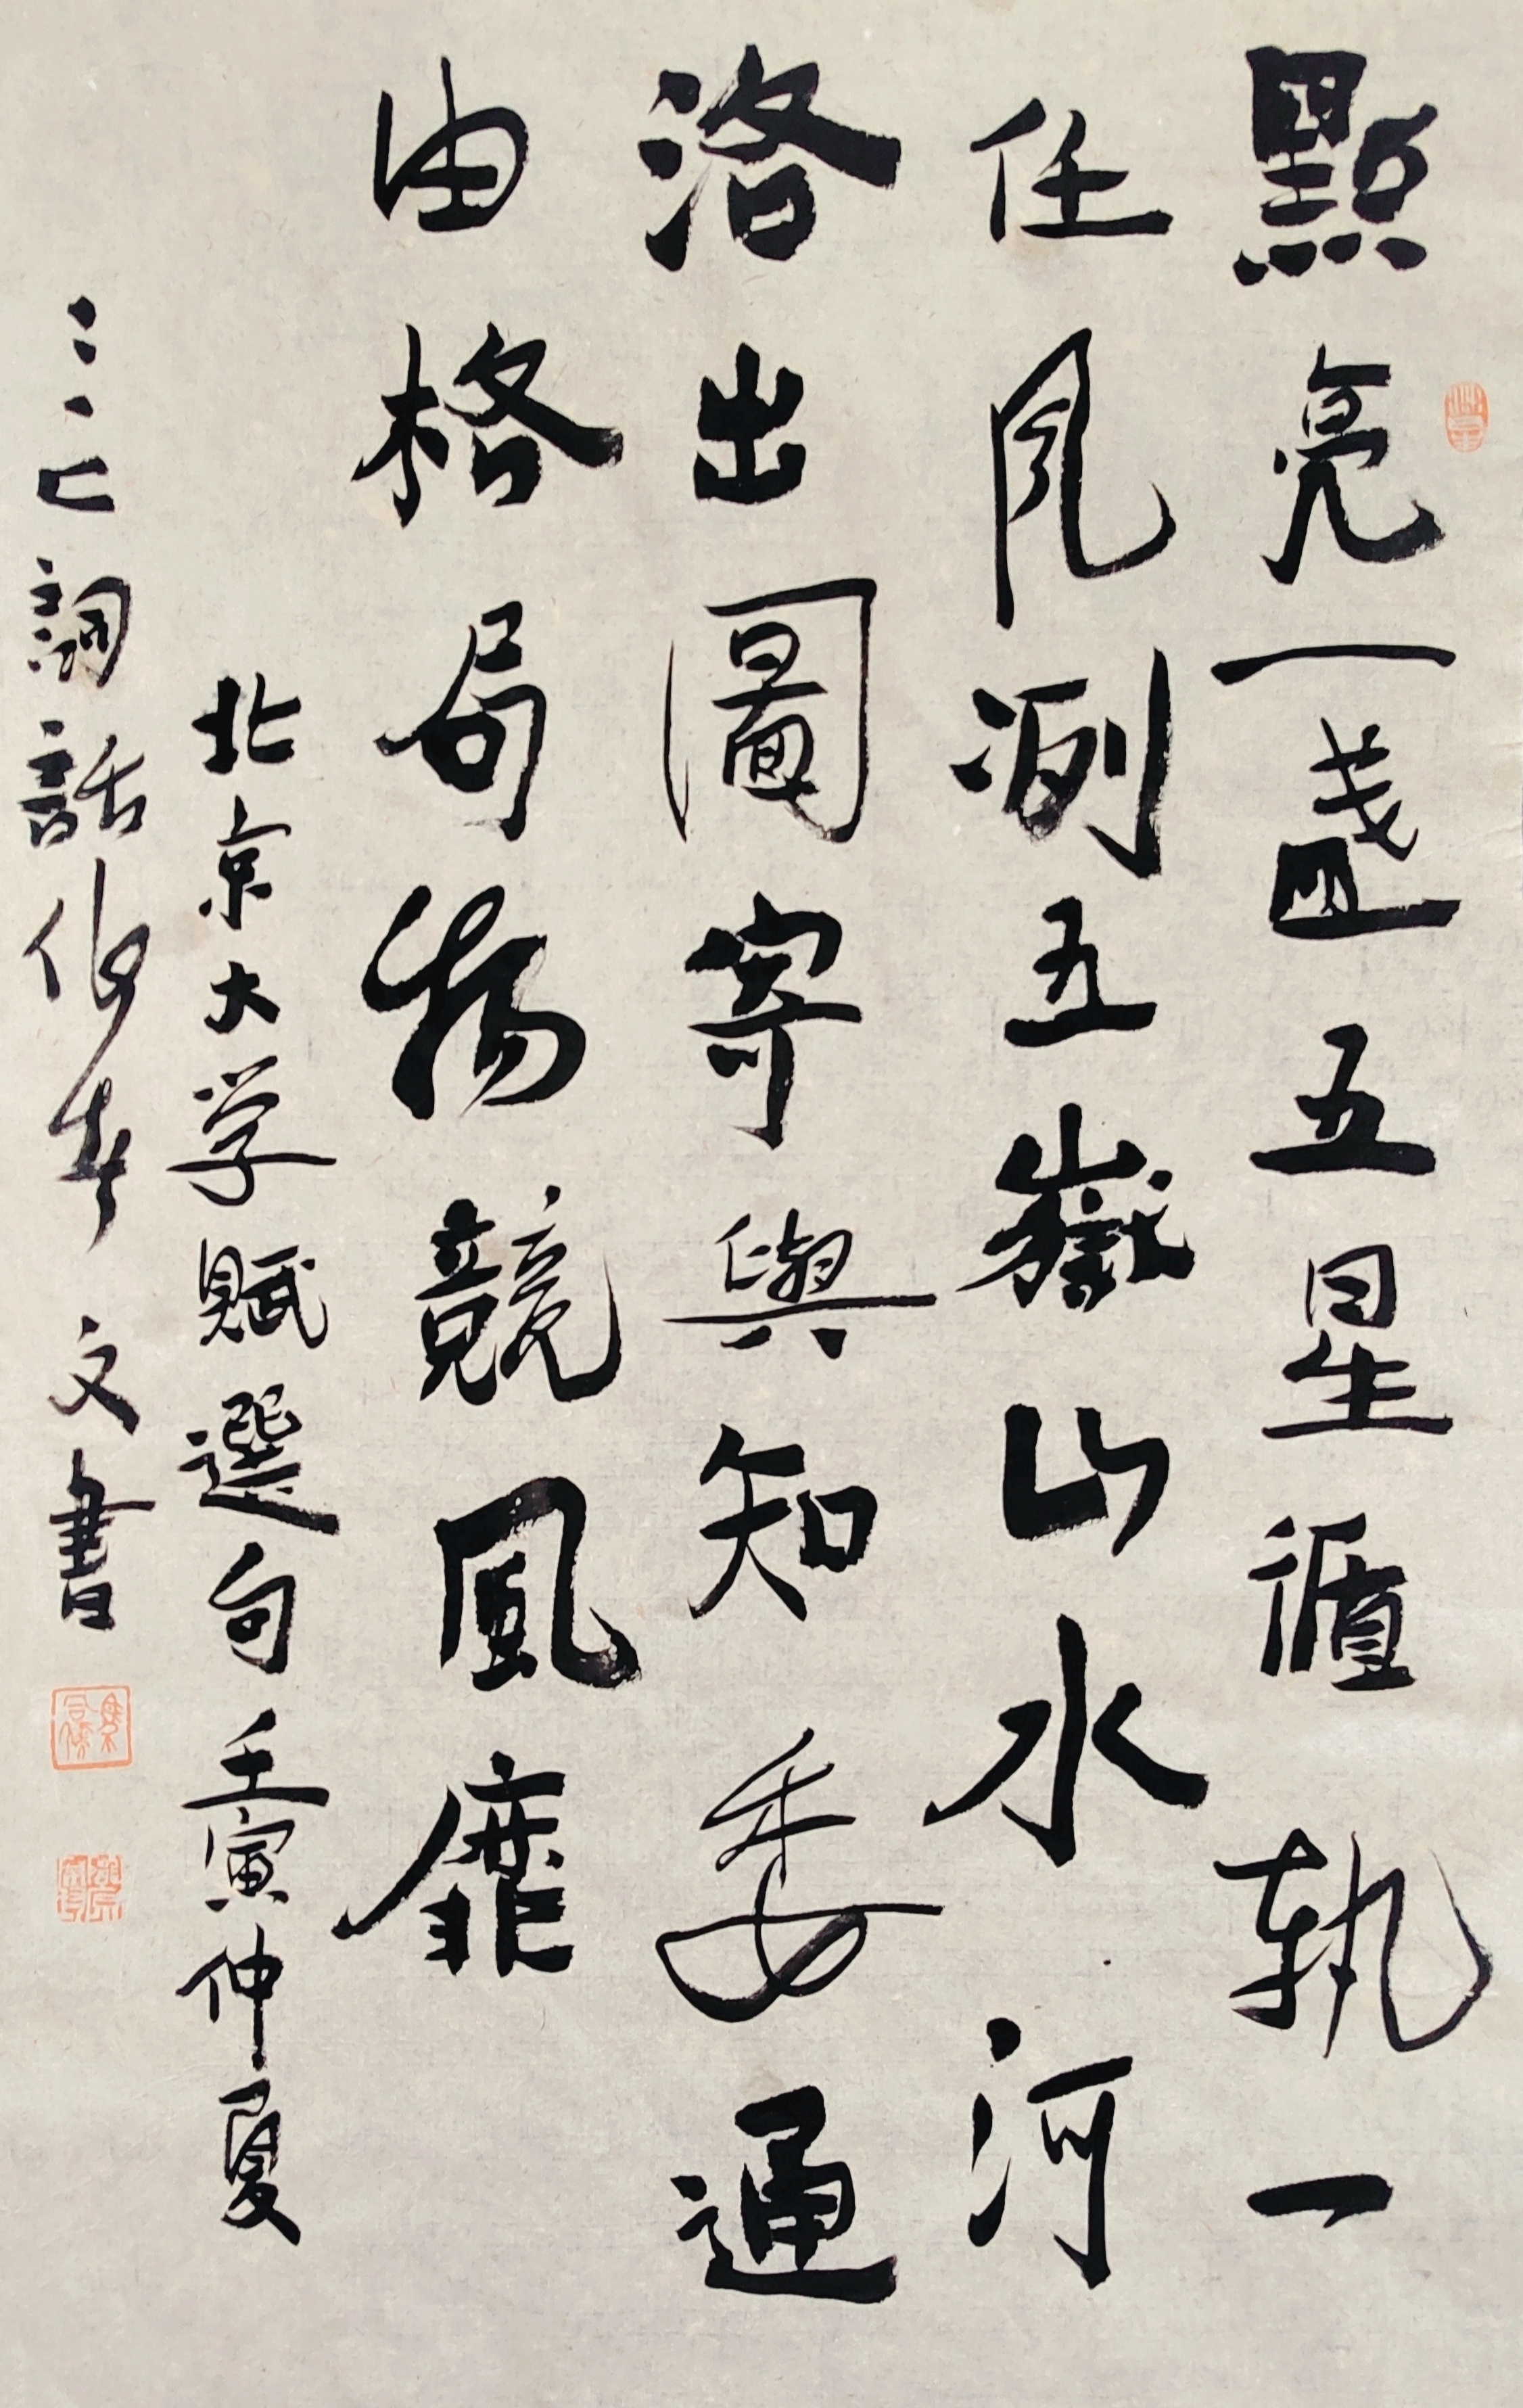 點亮一盞五星循執一
任風冽五嶽山水河
洛出圖寄與知委通
由格局物競風靡
北京大学賦選句壬寅仲夏
詞話文書